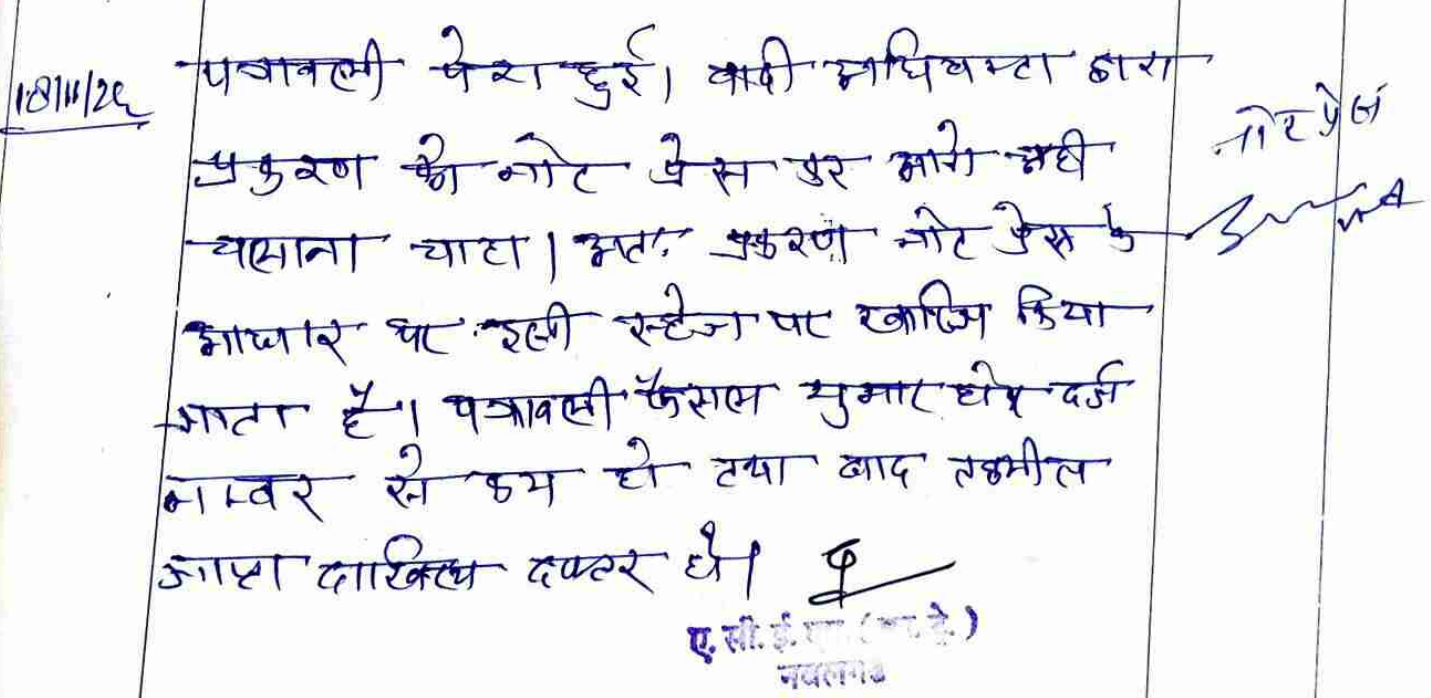 18/11/26
पत्रावली पेश हुई। वादी अधिवक्ता द्वारा
प्रकरण को नोट प्रेस कर आगे नहीं
चलाना चाहा। अतः प्रकरण नोट प्रेस के
आधार पर इसी स्टेज पर खारिज किया
जाता है। पत्रावली फैसल शुमार होकर दर्ज
नम्बर से कम हो तथा बाद तकमील
जाप्ता दाखिल दफ्तर हो।
नोट प्रेस
ए. सी. ई. एम.
नवलगढ